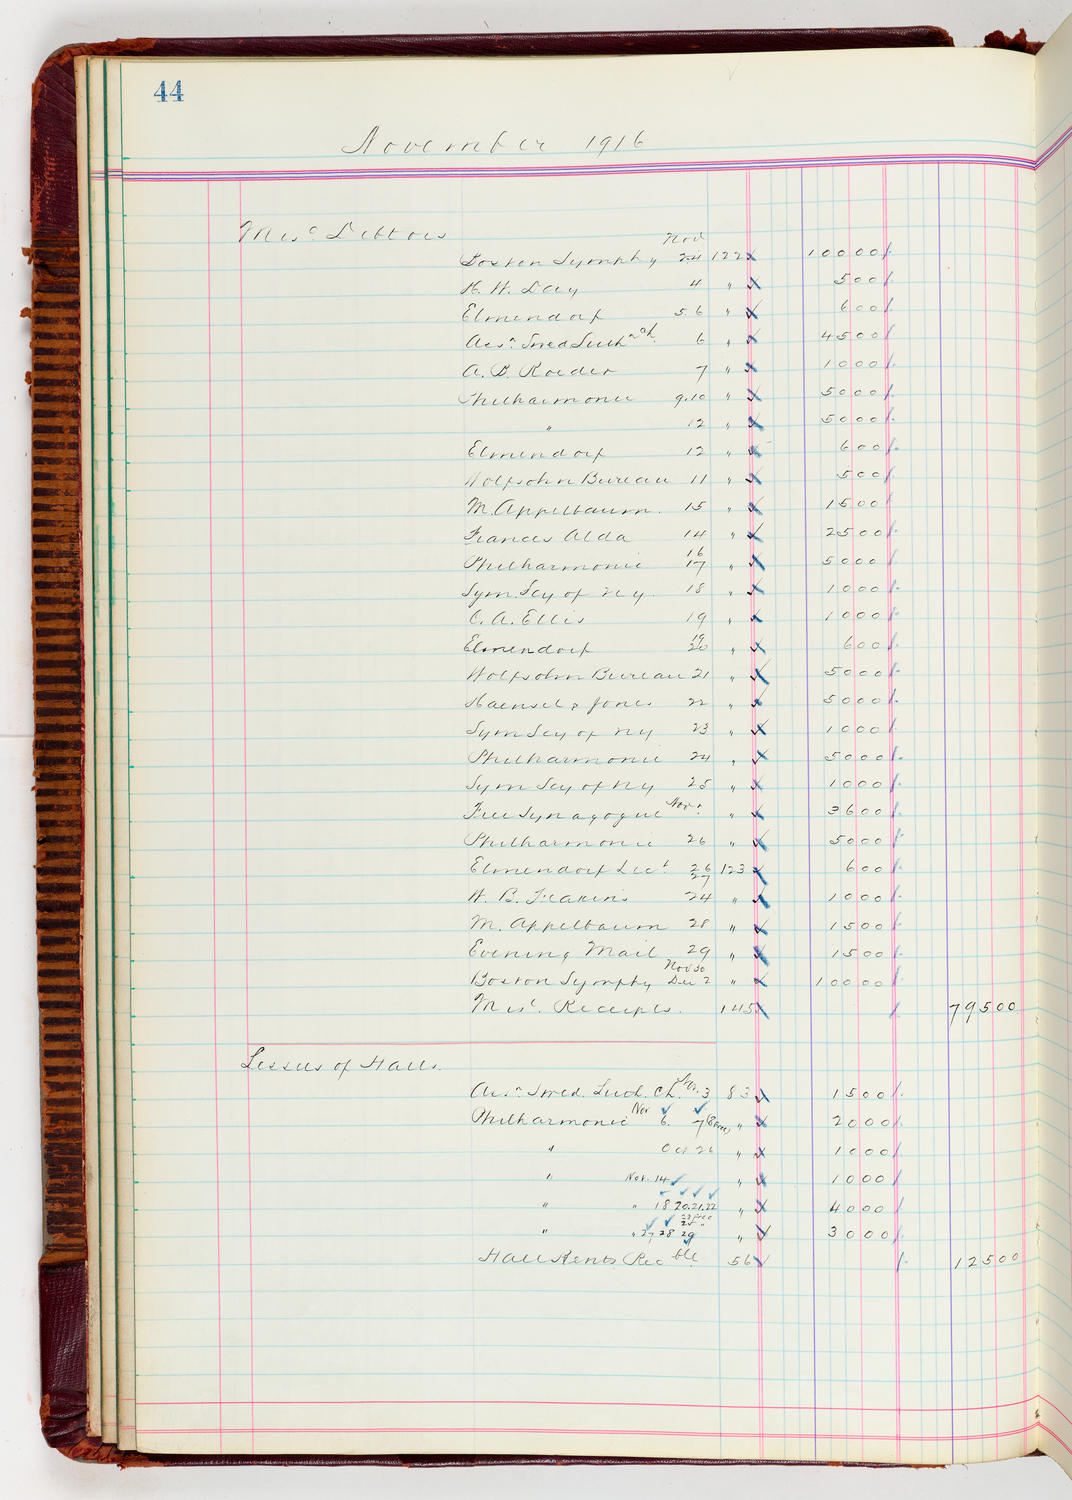 44
November 1916
Misc. Debtors
Nov
Boston Symphy 24 122 10000
H. W. Day 4 " 500
Elmendorf 5 6 " 600
Assn Swed Luthn Ch. 6 " 4500
A. B. Roeder 7 " 1000
Philharmonic 9.10 " 5000
" 12 " 5000
Elmendorf 12 " 600
Wolfsohn Bureau 11 " 500
M. Appelbaum. 15 " 1500
Frances Alda 14 " 2500
Philharmonic 16 17 " 5000
Sym. Scy of N Y. 18 " 1000
C. A. Ellis 19 " 1000
Elmendorf 19 20 " 600
Wolfsohn Bureau 21 " 5000
Haensel & Jones 22 " 5000
Sym Scy of N Y 23 " 1000
Philharmonic 24 " 5000
Sym Scy of N Y 25 " 1000
Free Synagogue Nov. " 3600
Philharmonic 26 " 5000
Elmendorf Lect 26 27 123 600
W. B. Feakins 24 " 1000
M. Appelbaum 28 " 1500
Evening Mail 29 " 1500
Boston Symphy Nov 30 Dec 2 " 10000
Misc. Receipts. 145 79500
Lessees of Halls.
Assn Swed. Luth. Ch. Nov. 3 83 1500
Philharmonic Nov 6. 7 " 2000
" Oct 26 " 1000
" Nov. 14 " 1000
" " 18 20.21.22 " 4000
23 free
25 "
" " 27 28 29 " 3000
Hall Rents Recble 56 12500